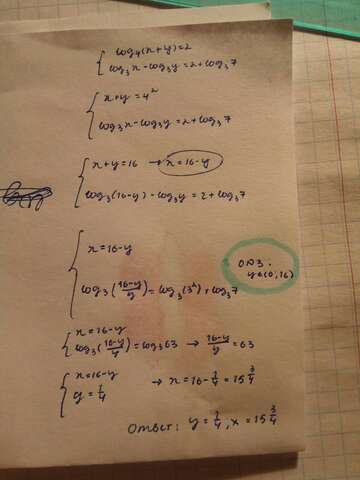 log₄(x+y)=2
log₃x-log₃y=2+log₃7
x+y=4²
log₃x-log₃y=2+log₃7
x+y=16 → x=16-y
log₃(16-y)-log₃y=2+log₃7
x=16-y
ОДЗ:
y∈(0;16)
log₃((16-y)/y)=log₃(3²)+log₃7
x=16-y
log₃((16-y)/y)=log₃63 → (16-y)/y=63
x=16-y → x=16-1/4=15 3/4
y=1/4
Ответ: y=1/4; x=15 3/4